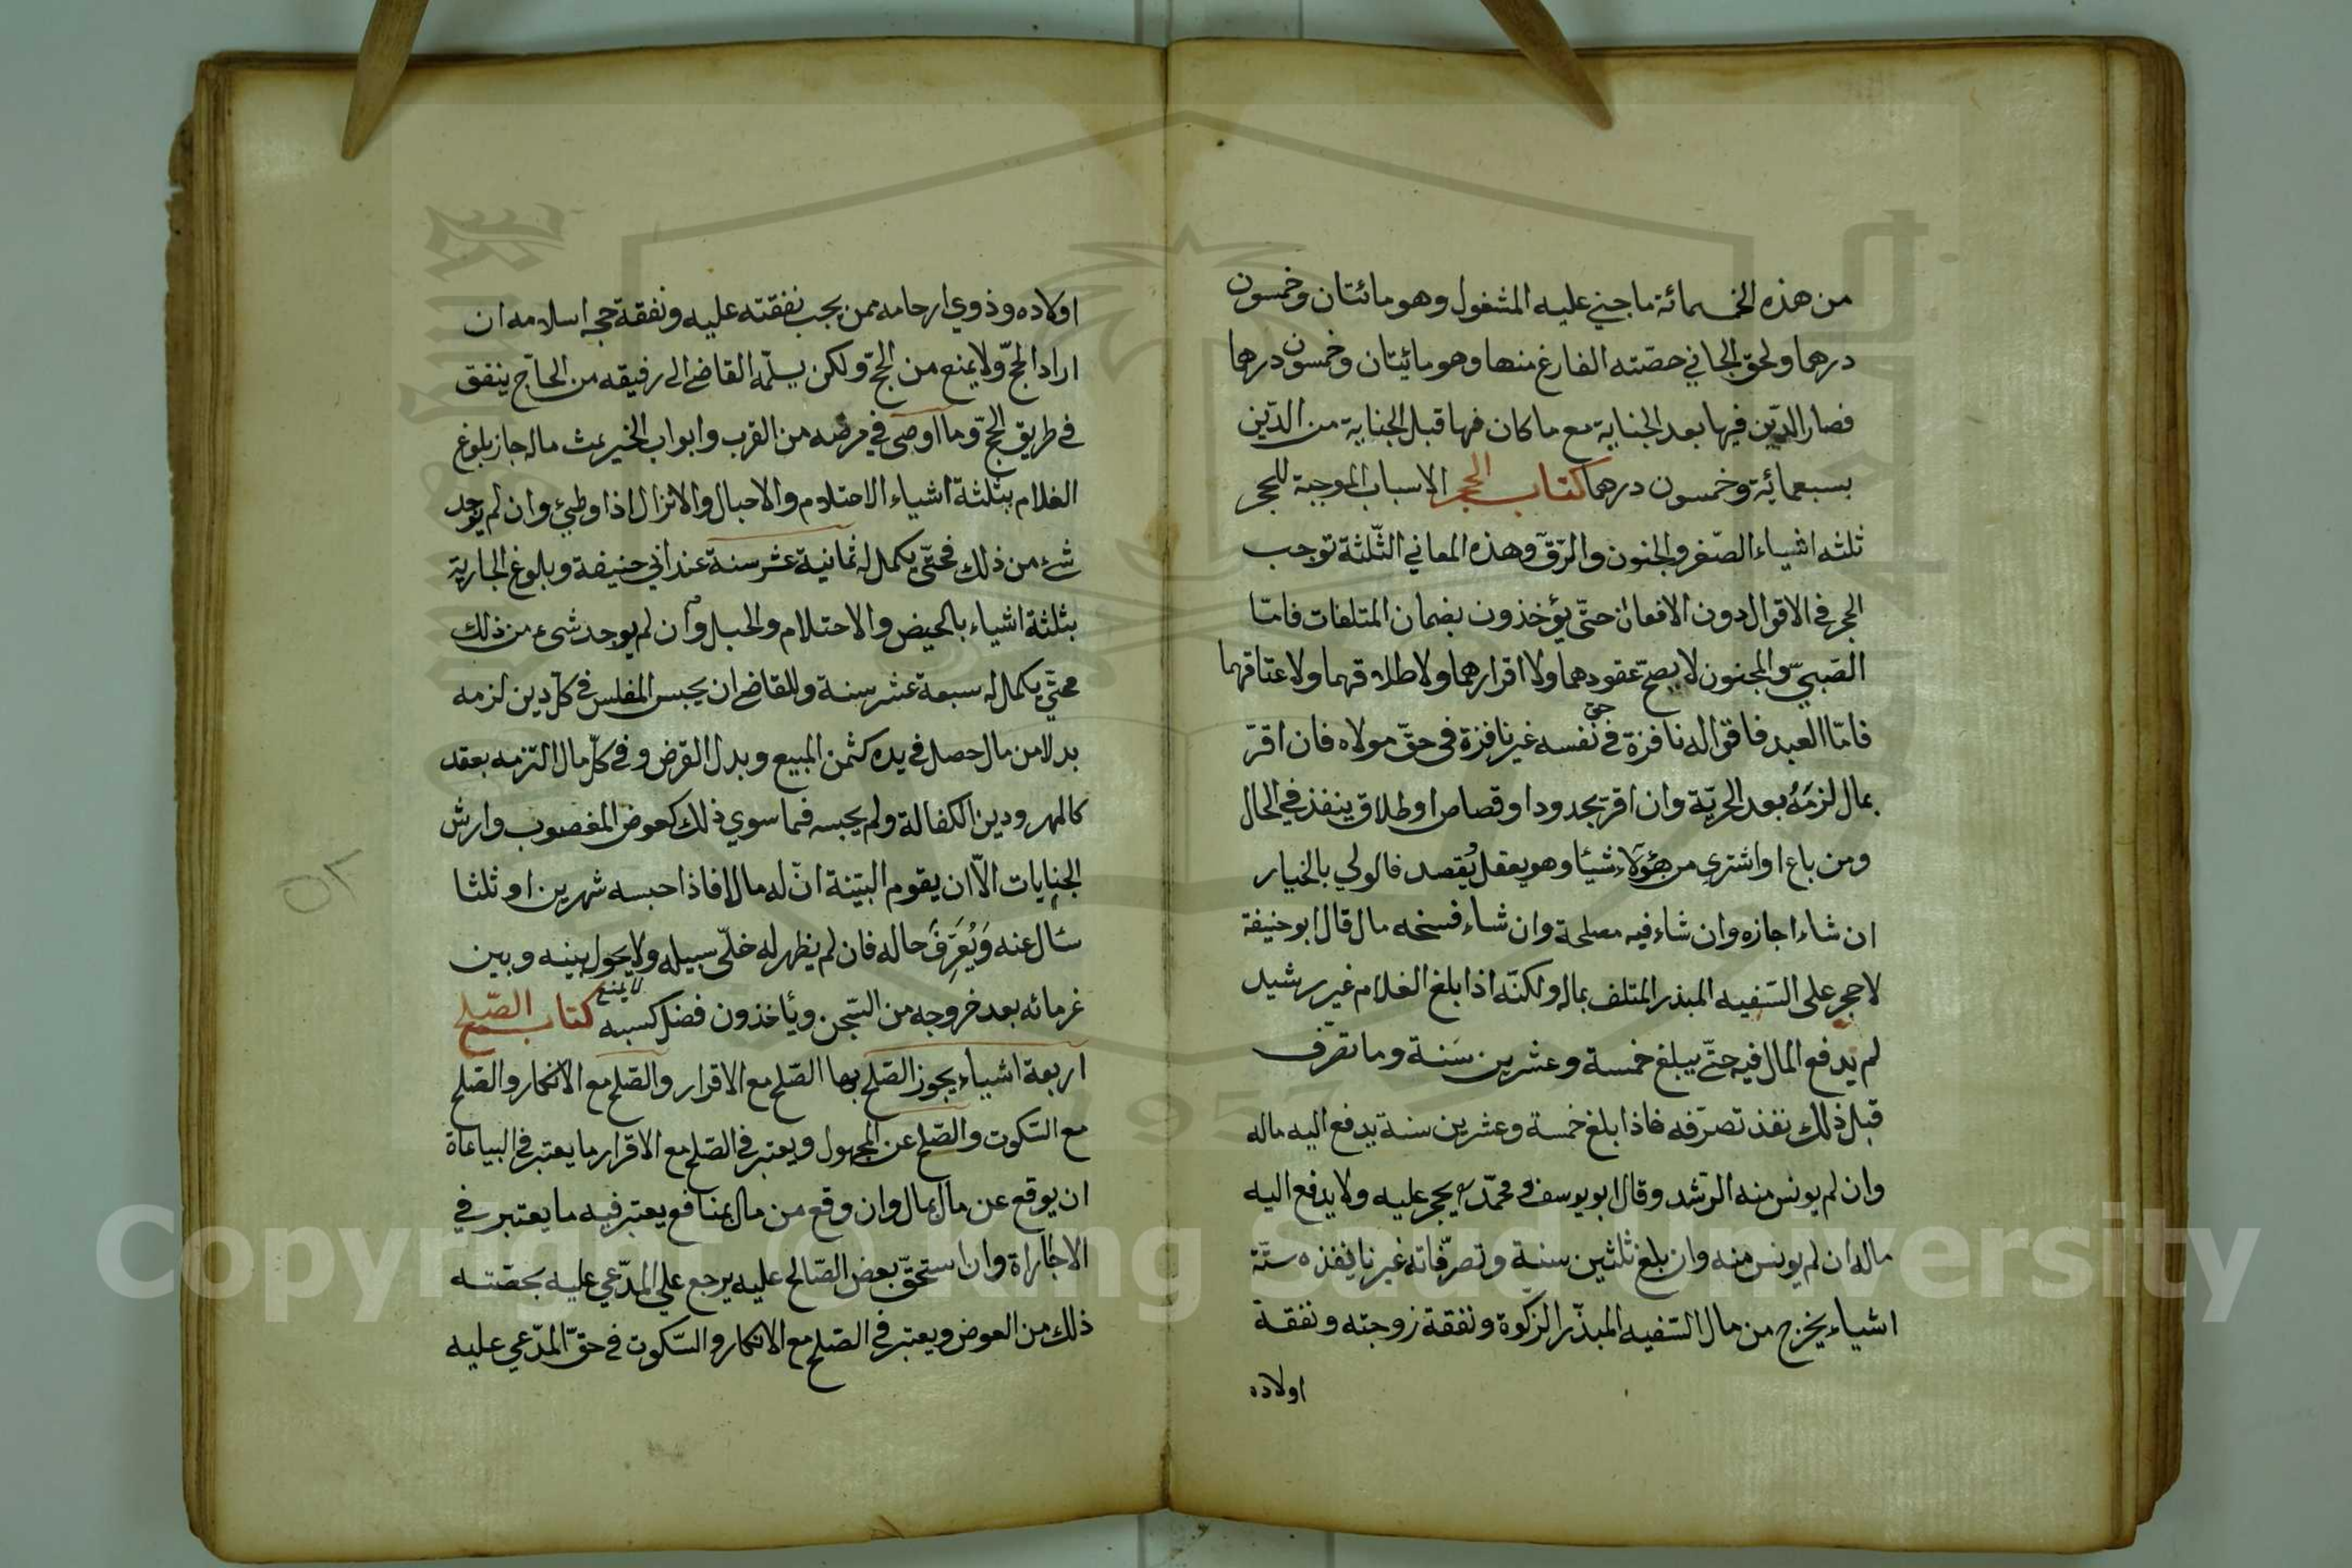 من هذه الخمسمائة ما جني عليه المشغول وهو مائتان وخمسون
درهما ولحق الجاني حصّته الفارغ منها وهو مائيتان وخمسون درهما
فصار الدّين فيها بعد الجناية مع ما كان فيها قبل الجناية من الدّين
بسبعمائة وخمسون درهما كتاب الحجر الاسباب الموجبة للحجر
ثلثه اشياء الصّغر والجنون والرّقّ وهذه المعاني الثّلثة توجب
الحجر في الاقوال دون الافعال حتّي يؤخذون بضمان المتلفات فامّا
الصّبيّ والمجنون لا يصحّ عقودهما ولا اقرارهما ولا طلاقهما ولا عتاقهما
فامّا العبد فاقواله نافزة في حق نفسه غير نافزة في حقّ مولاه فان اقرّ
بمال لزمَهُ بعد الحريّة وان اقرّ بحدود او قصاص او طلاق ينفذ في الحال
ومن باع او اشتري من هؤلاء شيئا وهو يعقل يُقصد فالولي بالخيار
ان شاء اجازه وان شاء فيه مصلحة وان شاء فسخه مال قال ابو حنيفة
لا حجر على السّفيه المبذر المتلف بماله ولكنّه اذا بلغ الغلام غير رشيد
لم يدفع المال فيه حتّي يبلغ خمسة وعشرين سَنة وما تصرّف
قبل ذلك نفذ تصرّفه فاذا بلغ خمسة وعشرين سنة يدفع اليه ماله
وان لم يونس منه الرّشد وقال ابو يوسف ومحمّد يحجر عليه ولا يدفع اليه
ماله ان لم يونس منه وان بلغ ثلثين سنة وتصرّفاته غير نافذه ستّة
اشياء يخرج من مال السّفيه المبذّر الزكوة ونفقة زوجته ونفقة
اولاده
اولاده وذوي ارحامه ممن يجب نفقته عليه ونفقة حجه اسلامه ان
اراد الحجّ ولا يمنع من الحجّ ولكن يسلّمه القاضي الي رفيقه من الحاجّ ينفق
في طريق الحجّ وما اوصى في مرضه من القرب وابواب الخير بمث ماله جاز بلوغ
الغلام بثلثة اشياء الاحتلام والاحبال والانزال اذا وطئ وان لم يوجد
شئ من ذلك فحتّي يكمل له ثمانية عشر سنة عند ابي حنيفة وبلوغ الجارية
بثلثة اشياء بالحيض والاحتلام والحبل وان لم يوجد شئ من ذلك
فحتّي يكمل له سبعة عشر سنة وللقاضي ان يحبس المفلس في كلّ دين لزمه
بدلا من مال حصل في يده كثمن المبيع وبدل القرض وفي كلّ مال التزمه بعقد
كالمهر ودين الكفالة ولم يحبسه فيما سوي ذلك كعوض المغصوب وارش
الجنايات الّا ان يقوم البيّنة انّ له مالا فاذا حبسه شهرين او ثلثا
سَال عنه وَيُعَرِفَ حاله فان لم يظهر له خلّى سبيله ولا يحول بينه وبين
غرمائه بعد خروجه من السّجن ويأخذون فضل كسبه لا يمنع كتاب الصّلح
اربعة اشياء يجوز الصّلح بها الصّلح مع الاقرار والصّلح مع الانكار والصّلح
مع السّكوت والصّلح عن المجهول ويعتبر في الصّلح مع الاقرار ما يعتبر في البياعاة
ان يوقع عن مال بمال وان وقع من مال بمنافع يعتبر فيه ما يعتبر في
الاجاراة وان استحقّ بعض الصّالح عليه يرجع علي المدّعي عليه بحصّته
ذلك من العوض ويعتبر في الصّلح مع الانكار والسّكوت في حقّ المدّعي عليه
1957
Copyright © King Saud University